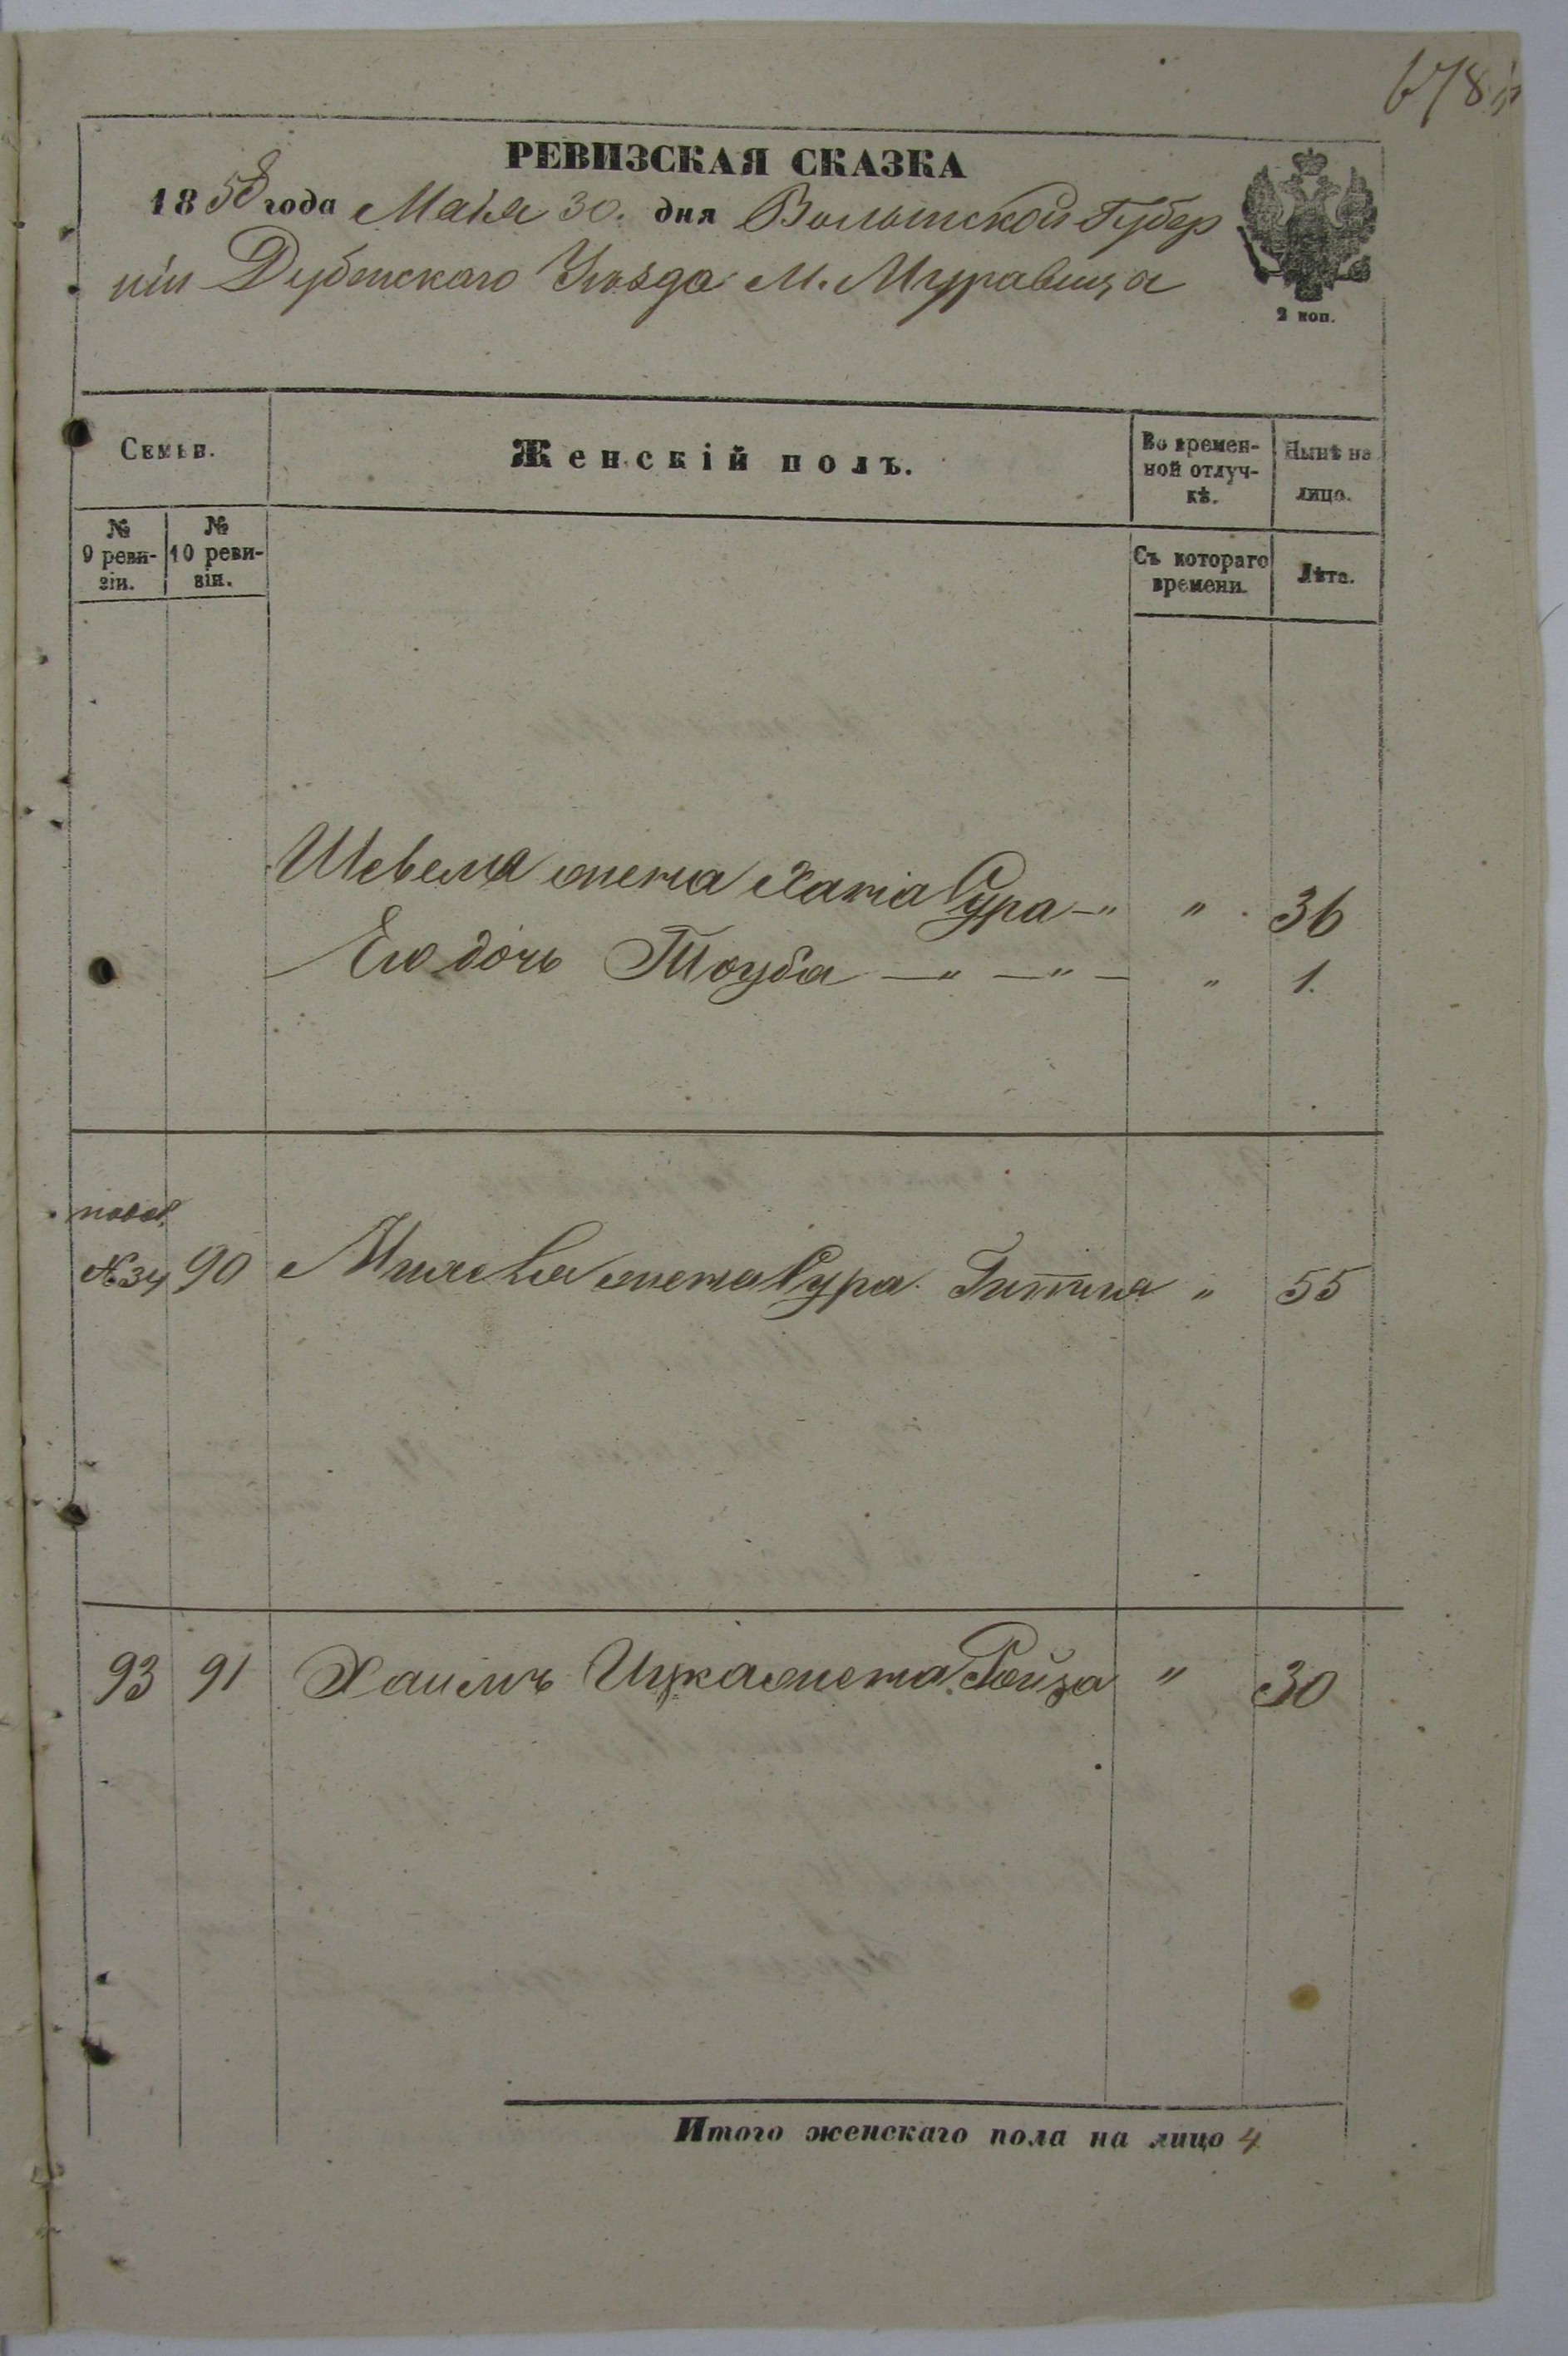 678
РЕВИЗСКАЯ СКАЗКА
1858 года Маія 30. дня Волынской Губер
ніи Дубенскаго Уѣзда М. Муравица
2 коп.
Семьи.
Женскій полъ.
Во времен-
ной отлуч-
кѣ.
Нынѣ на
лицо.
№
9 реви-
зіи.
№
10 реви-
зіи.
Съ котораго
времени.
Лѣта.
Шевеля жена Хана Сура —„ „ 36
Его дочь Тоуба — „ — „ — „ 1.
№34 90 жена Сура Гитля „ 55
93 91 Хаимъ Ицка жена Ройза „ 30
Итого женскаго пола на лицо 4